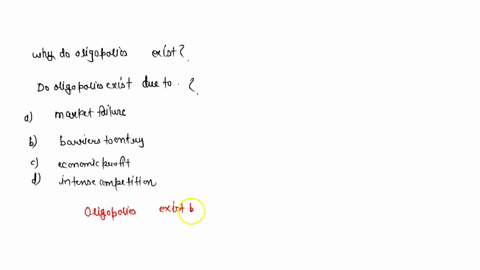 why do oligopolies exist?
Do oligopolies exist due to . ?
a) market failure
b) barriers to entry
c) economic profit
d) intense competition
Oligopolies exist b